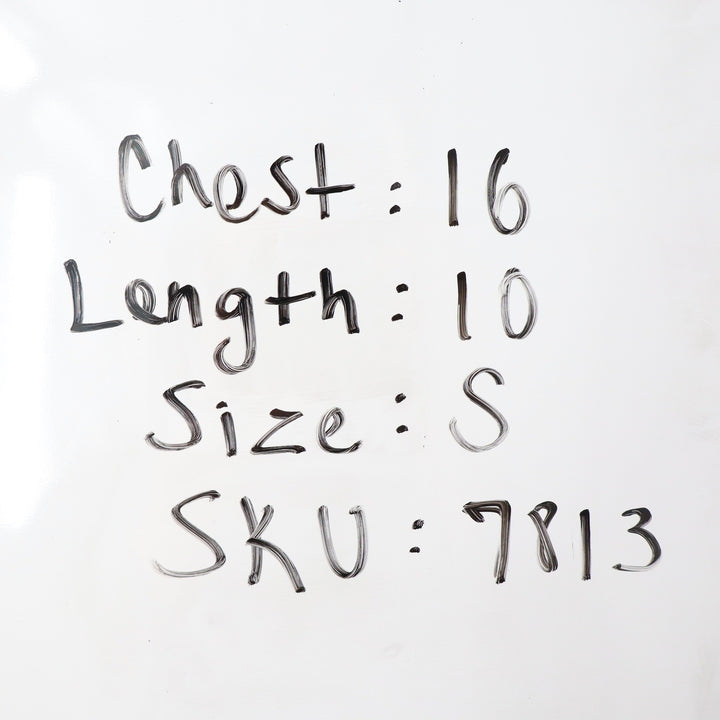 Chest: 16
Length: 10
Size: S
SKU: 7813